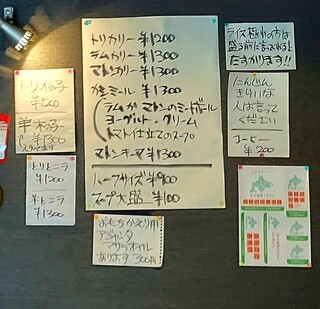 トリカリー ¥1200
ラムカリー ¥1300
マトンカリー ¥1300
ミール ¥1300
ラムかマトンのミートボール
ヨーグルト・クリーム
トマト仕立てのスープ
マトンキーマ ¥1300
ハーフサイズ ¥900
スープ大盛 ¥100
トリオの子
¥1200
羊木の子
¥1300
とりとニラ
¥1200
羊とニラ
¥1300
おもちかえり用
アジャンタ
マサラオイル
あります 300円
ライス
盛る前に言ってくれると
たすかります!!
にんじん
きらいな
人は言って
ください
コーヒー
¥200